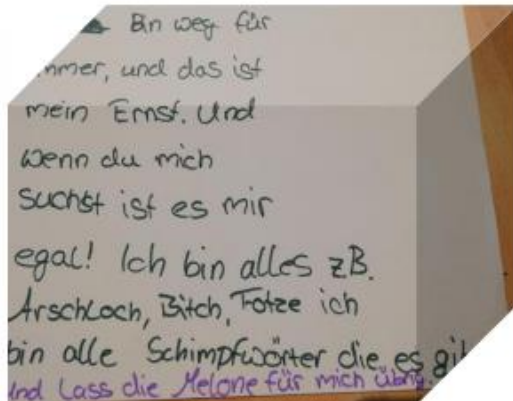 Bin weg für
immer, und das ist
mein Ernst. Und
wenn du mich
suchst ist es mir
egal! Ich bin alles zB.
Arschloch, Bitch, Fotze ich
bin alle Schimpfwörter die es gib
und lass die Melone für mich übrig.